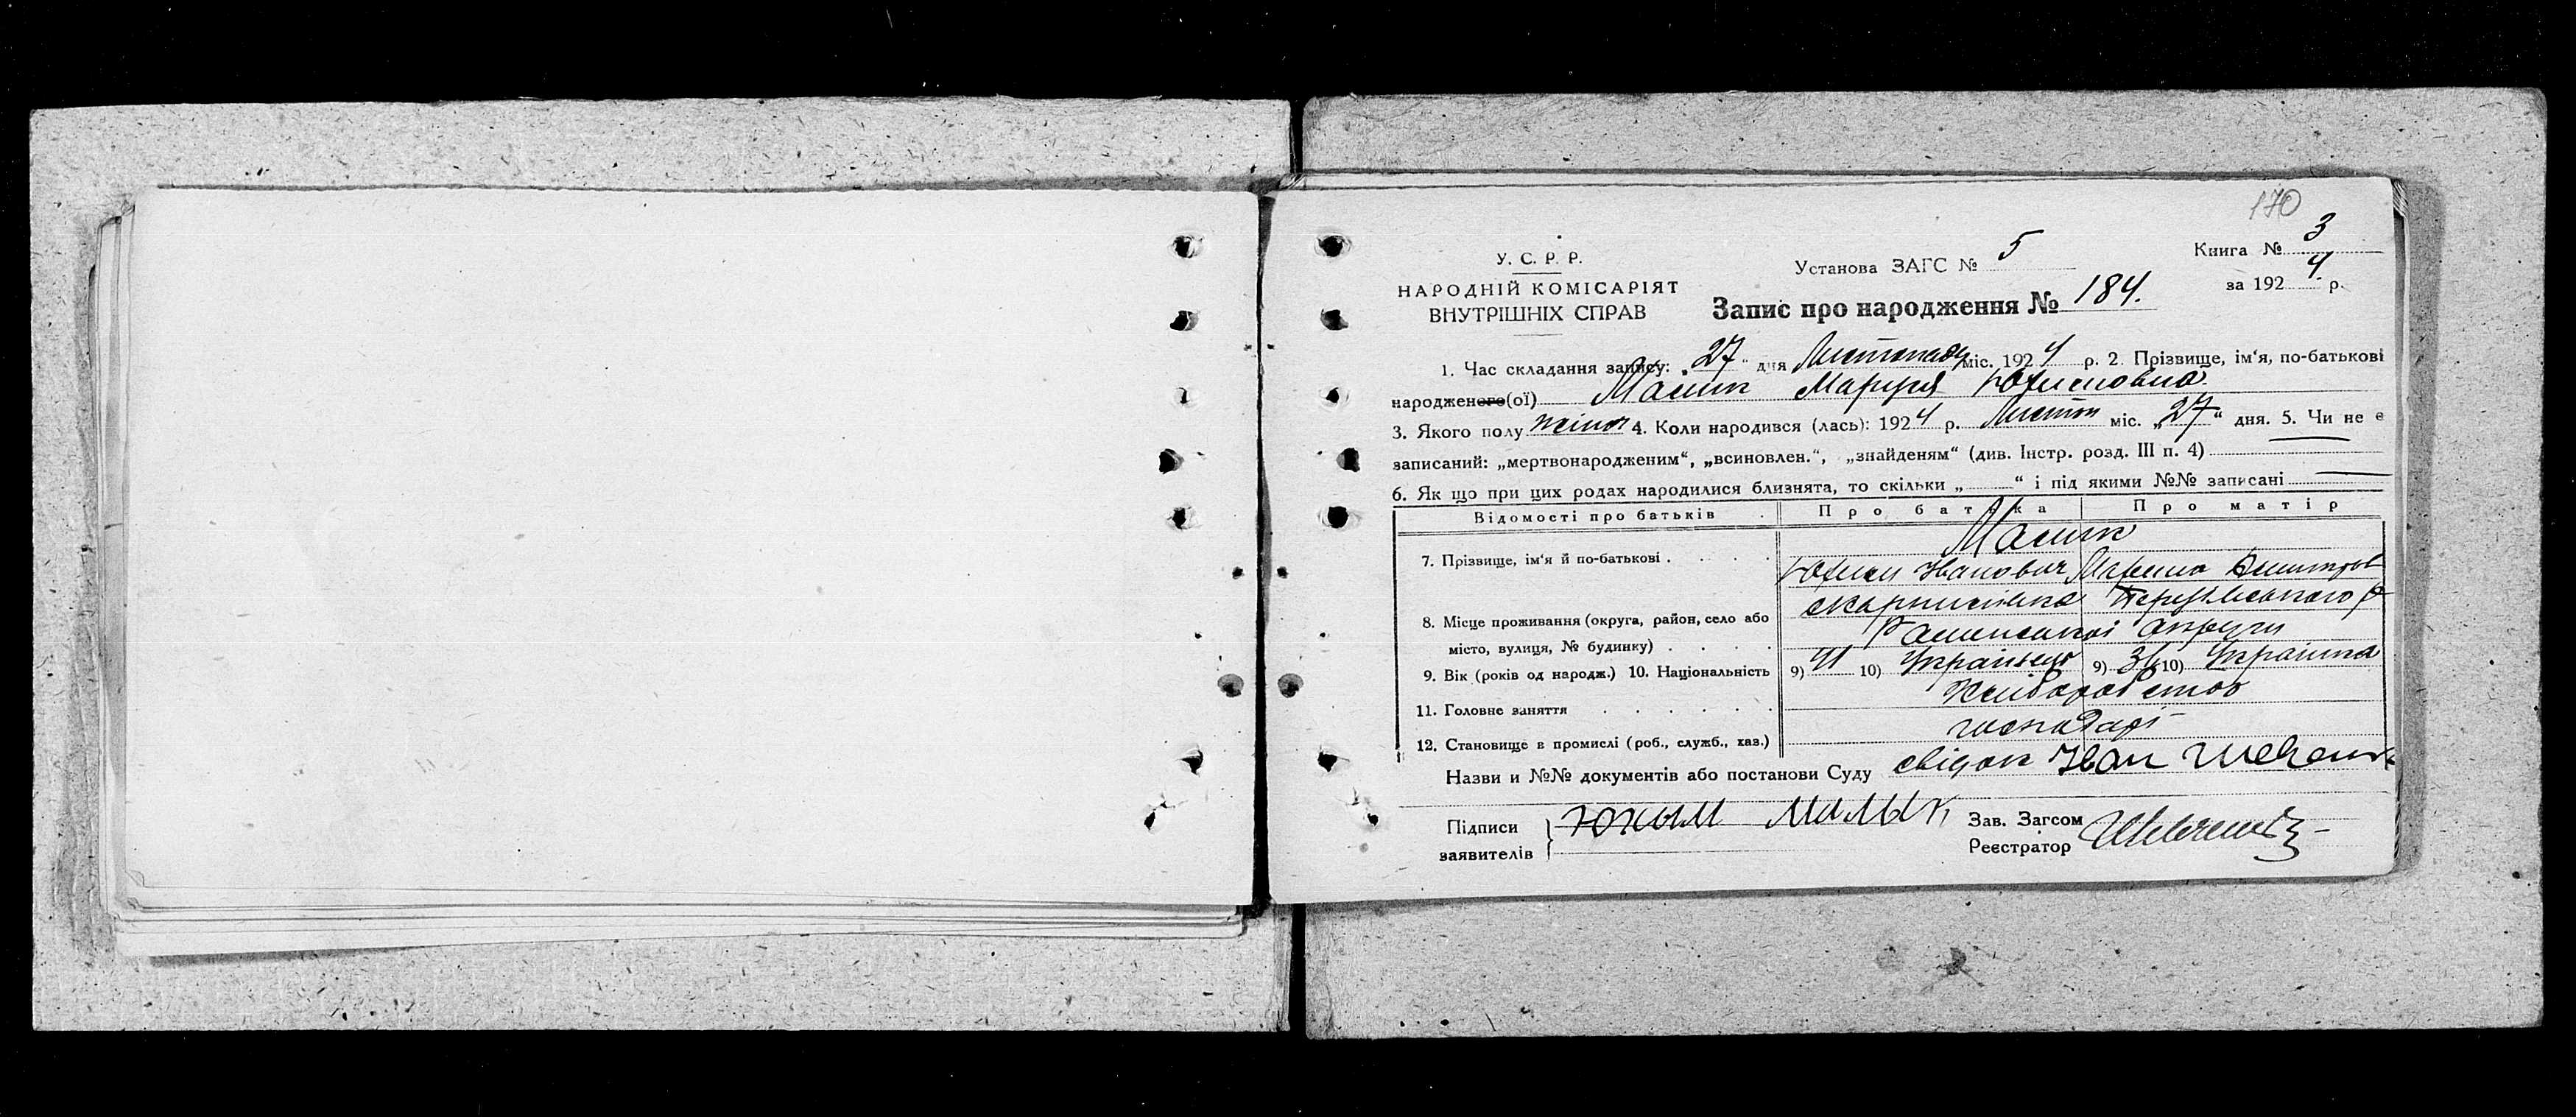 170
У. С. Р. Р.
НАРОДНІЙ КОМІСАРІЯТ
ВНУТРІШНІХ СПРАВ
Установа ЗАГС № 5
Книга № 3
за 1924 р.
Запис про народження № 184.
1. Час складання запису: 27 " дня Листопаду міс. 1924 р. 2. Прізвище, ім'я, по-батькові
народженого(ої) Малик Маруся Юхимовна
3. Якого полу жіноч 4. Коли народився (лась): 1924 р. Листоп міс. „27“ дня. 5. Чи не є
записаний: „мертвонародженим“, „всиновлен.“, „знайденям“ (див. Інстр. розд. III п. 4)
6. Як що при цих родах народилися близнята, то скільки „ “ і під якими №№ записані
Відомості про батьків Про батька Про матір
7. Прізвище, ім'я й по-батькові Малик
Юхим Іванович Марина
8. Місце проживання (округа, район, село або
місто, вулиця, № будинку) Роменської округи
9. Вік (років од народж.) 10. Національність 9) 41 10) Українець 9) 36 10) Українка
11. Головне заняття Хліборобство
12. Становище в промислі (роб., служб., хаз.) господарі
Назви и №№ документів або постанови Суду свідок Іван
Підписи
заявителів Юхым Малык
Зав. Загсом
Реєстратор